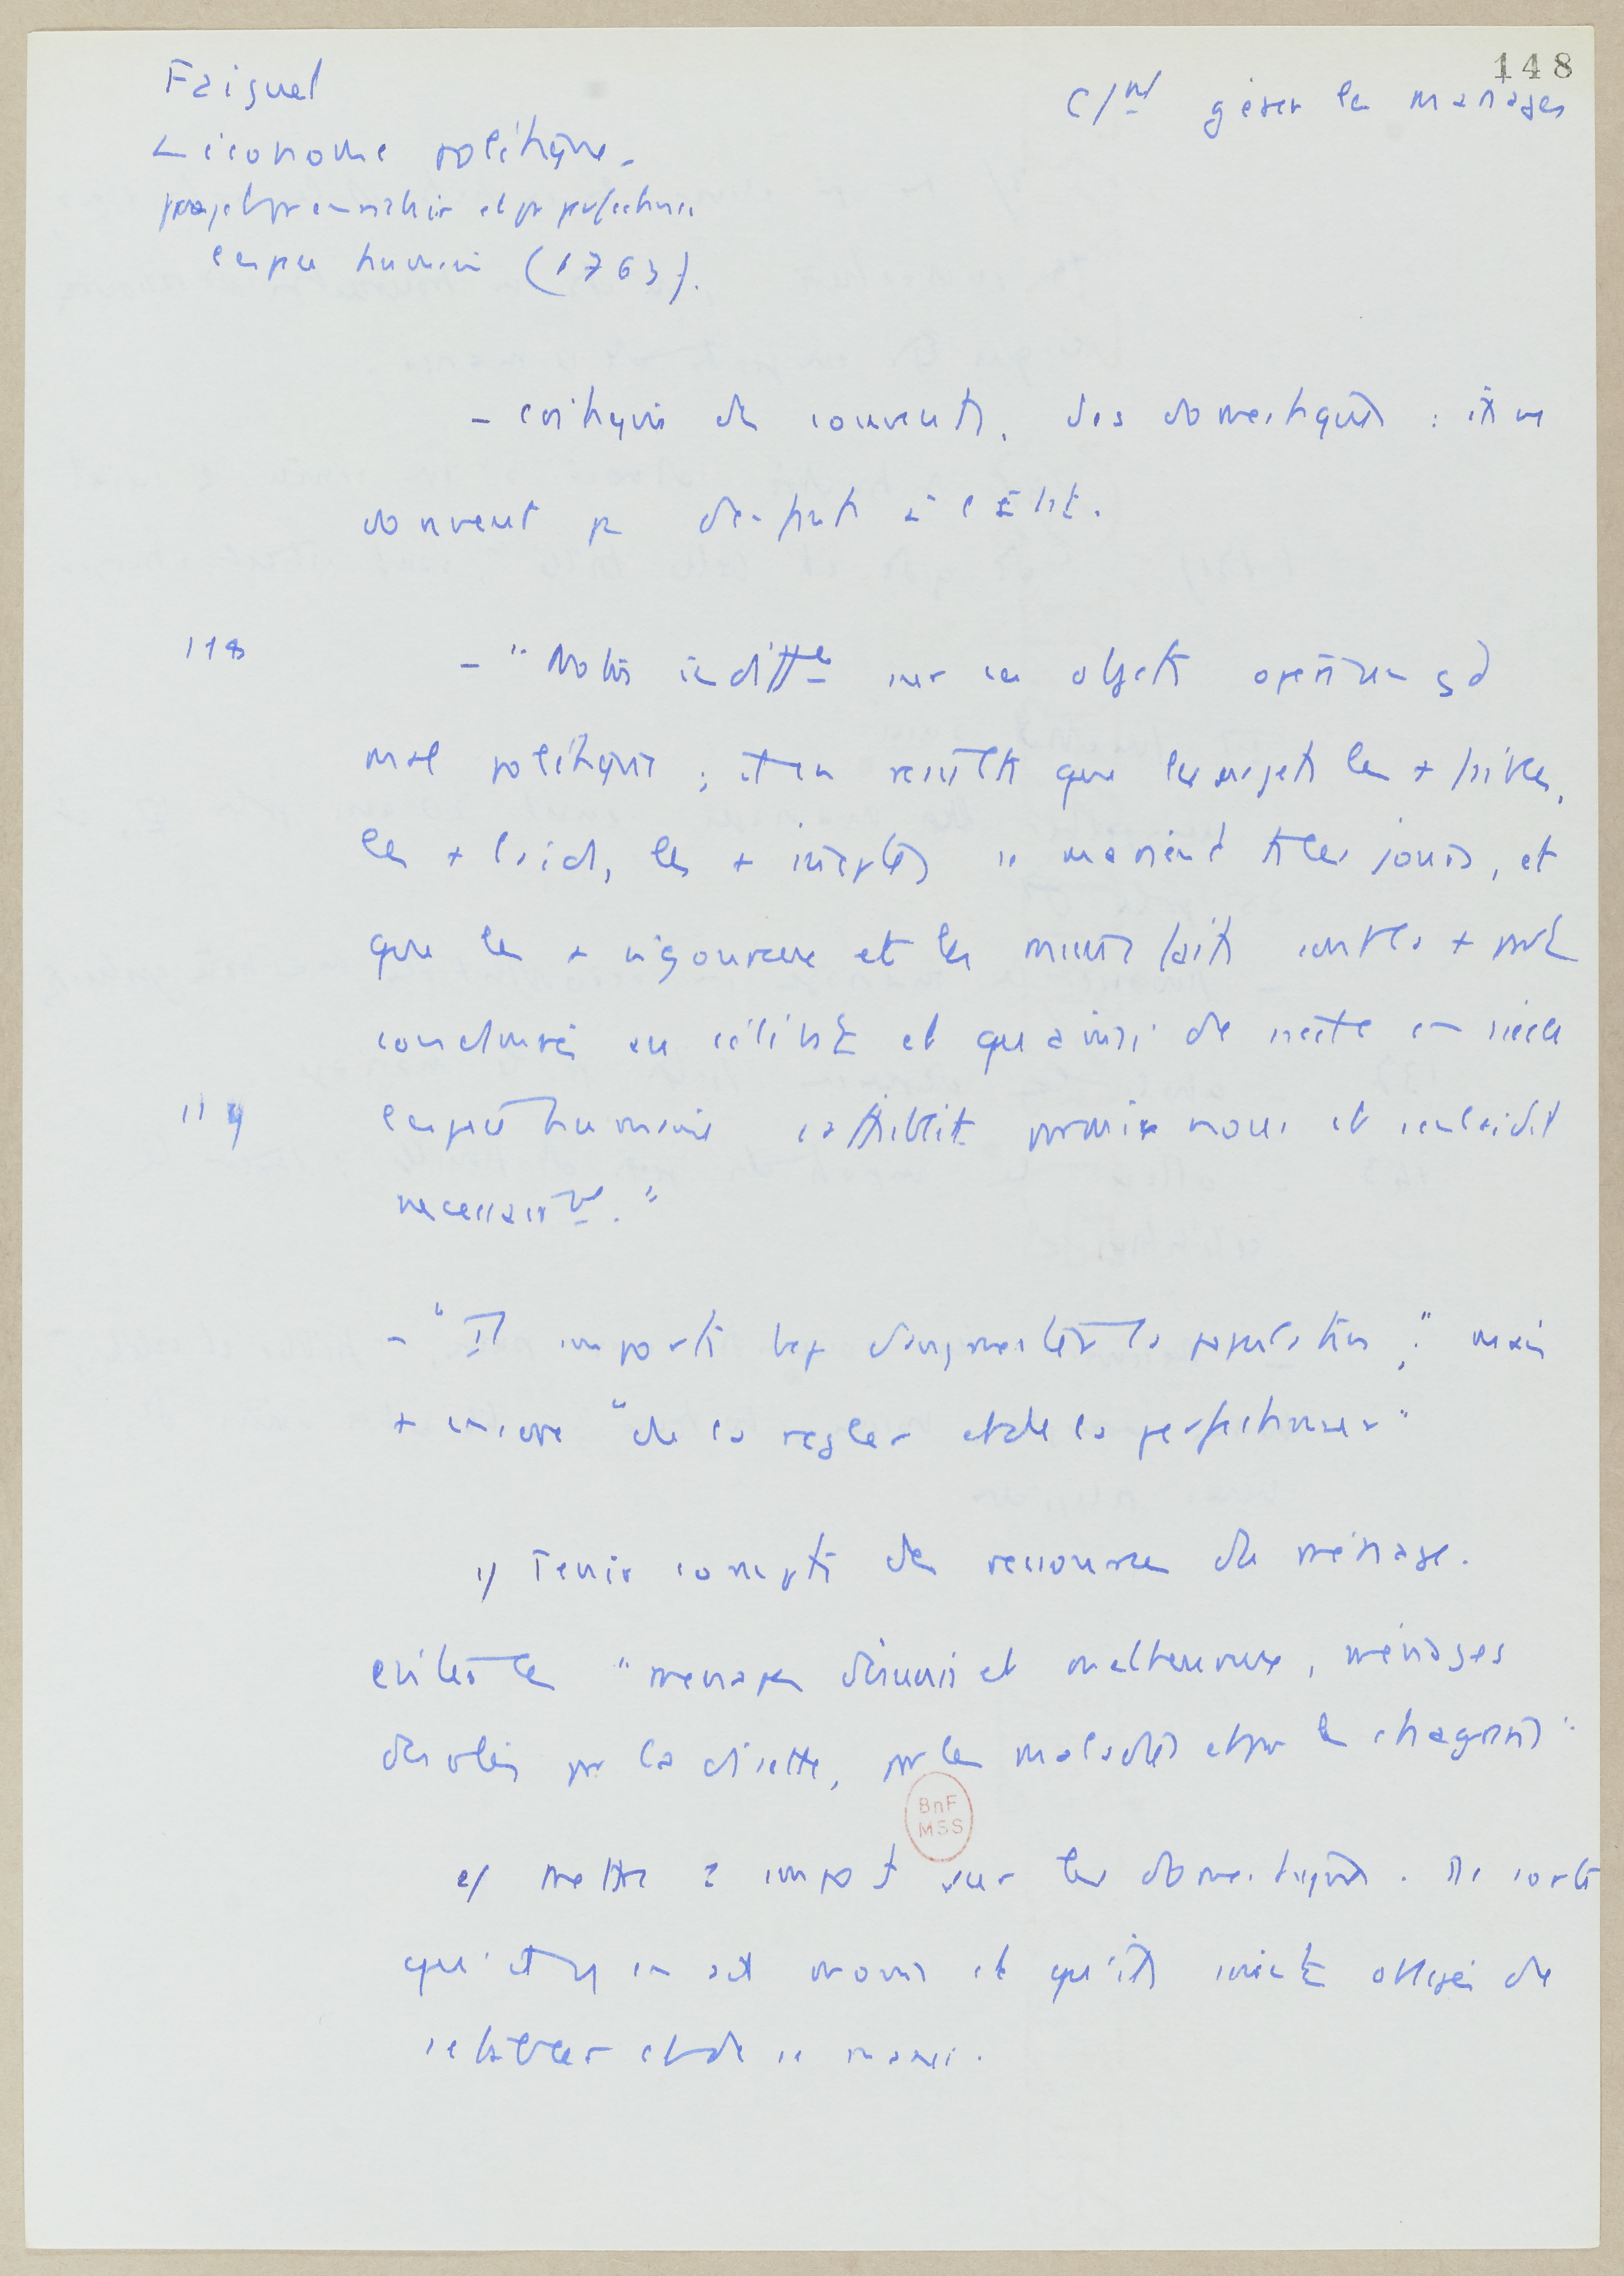 148
Faiguet
C/nt gérer les mariages
L'économie politique.
projet pr enrichir et pr perfectionner
l'espèce humaine (1763).
- critique des couvents, des domestiques : ils ne
donnent pas d'enfants à l'Etat.
118
- "Notre indiffce sur ces objets opère un gd
mal politique ; il en résulte que les sujets les + faibles,
les + laids, les + ineptes se marient ts les jours, et
que les + vigoureux et les mieux faits sont les + svt
condamnés au célibat et qu'ainsi de siècle en siècle
119
l'espèce humaine s'affaiblit parmi nous et s'enlaidit
nécessairemt."
- "Il importe bcp d'augmenter la population", mais
+ encore "de la régler et de la perfectionner"
1/ Tenir compte des ressources du ménage.
éviter les "ménages désunis et malheureux, ménages
désolés par la disette, par les maladies et par les chagrins"
2/ mettre 1 impôt sur les domestiques. De sorte
qu'il y en ait moins et qu'ils soient obligés de
s'établir et de se marier.
BnF
MSS